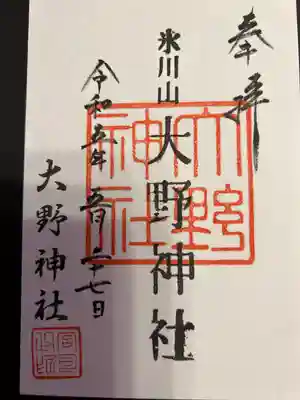 奉拝
氷川山
大野神社
大野神社
令和五年 五月 二十七日
大野神社